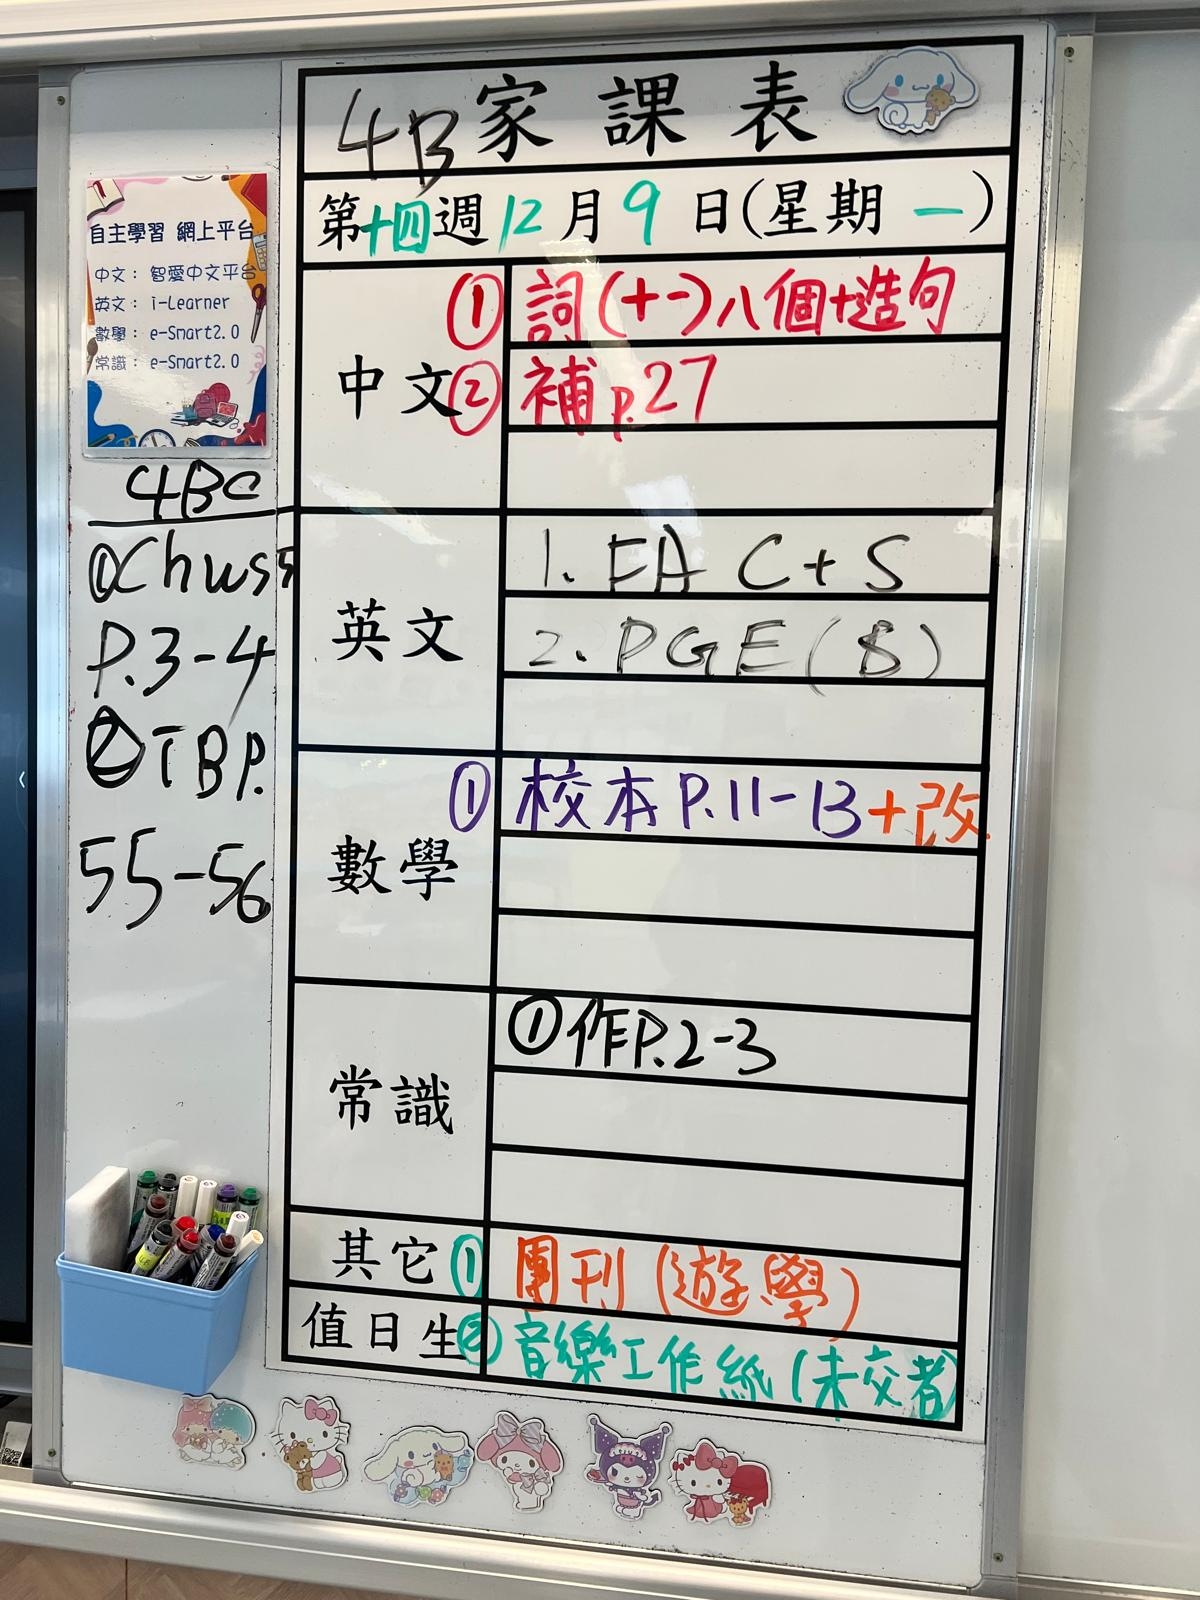 4B家課表
第十四週12月9日(星期一)
自主學習 網上平台
中文： 智愛中文平台
英文： i-Learner
數學： e-Smart2.0
常識： e-Smart2.0
4BC
① Ch ws5
P.3-4
② TB P.
55-56
中文
① 詞(十一)八個+造句
② 補p.27
英文
1. FA C+S
2. PGE(B)
數學
① 校本P.11-13+改
常識
① 作P.2-3
其它
① 團刊(遊學)
值日生
② 音樂工作紙(未交者)